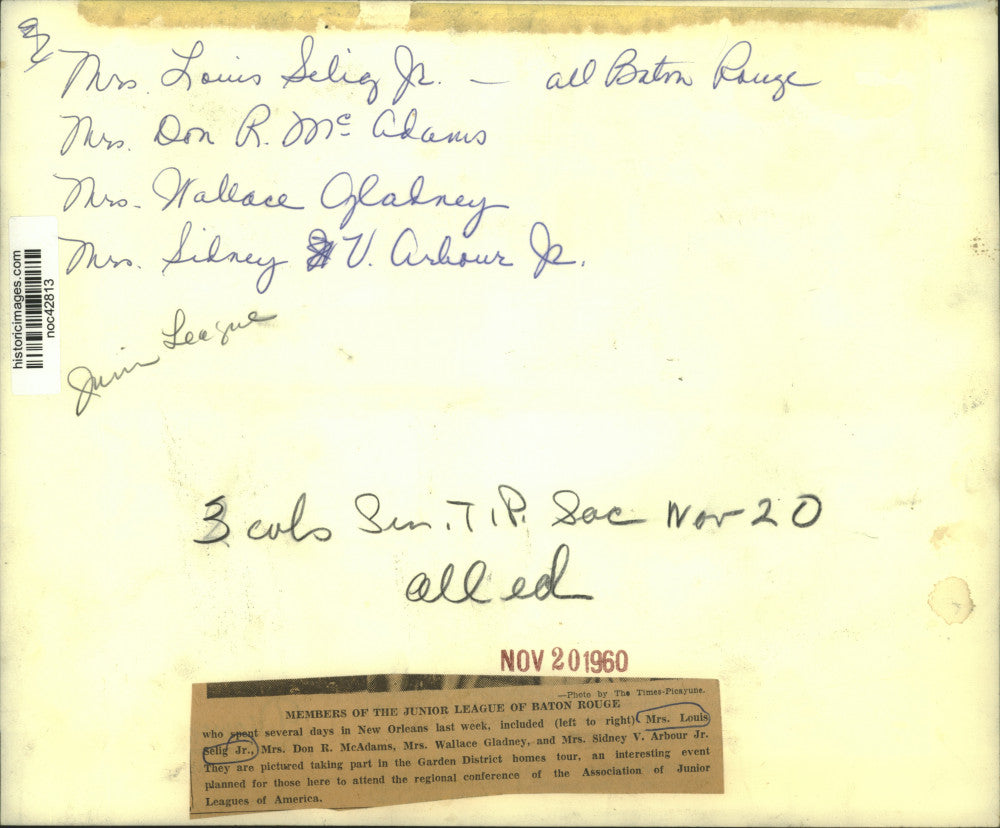 Mrs. Louis Selig Jr. — all Baton Rouge
Mrs. Don R. Mc Adams
Mrs. Wallace Gladney
Mrs. Sidney V. Arbour Jr.
historicimages.com
noc42813
Junior League
3 cols Sun. T.P. Soc Nov 20
all ed
NOV 20 1960
—Photo by The Times-Picayune.
MEMBERS OF THE JUNIOR LEAGUE OF BATON ROUGE
who spent several days in New Orleans last week, included (left to right) Mrs. Louis
Selig Jr., Mrs. Don R. McAdams, Mrs. Wallace Gladney, and Mrs. Sidney V. Arbour Jr.
They are pictured taking part in the Garden District homes tour, an interesting event
planned for those here to attend the regional conference of the Association of Junior
Leagues of America.